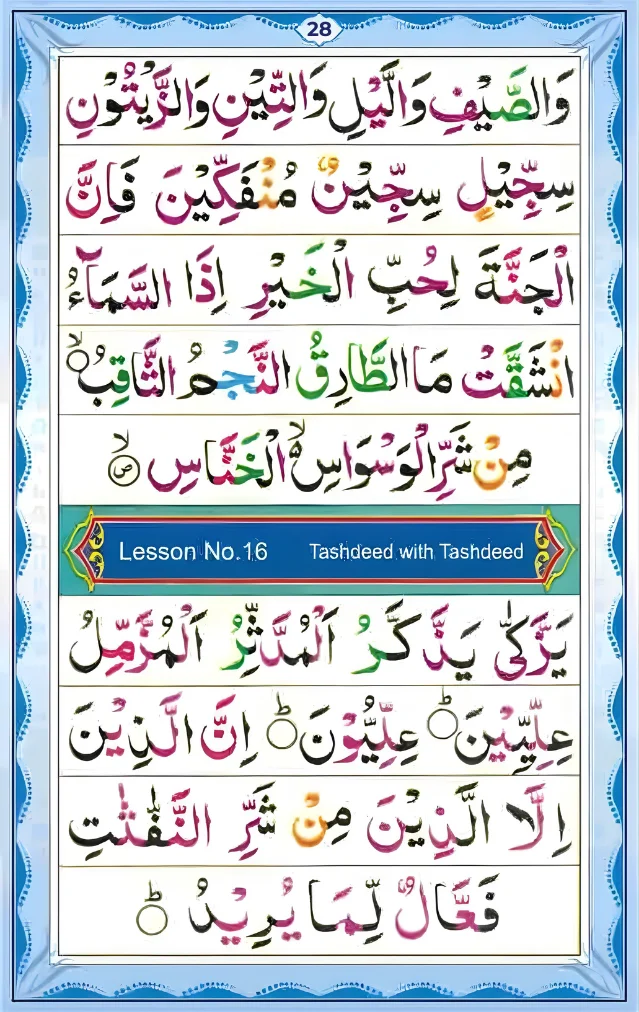 28
وَالصَّيْفِ وَالَّيْلِ وَالتِّيْنِ وَالزَّيْتُوْنِ
سِجِّيْلٍ سِجِّيْنٌ مُنْفَكِّيْنَ فَاِنَّ
الْجَنَّةَ لِحُبِّ الْخَيْرِ اِذَا السَّمَآءُ
انْشَقَّتْ مَا الطَّارِقُ النَّجْمُ الثَّاقِبُۙ
مِنْ شَرِّ الْوَسْوَاسِ ۙ۬ الْخَنَّاسِ ۪ۙ
Lesson No.16 Tashdeed with Tashdeed
يَزَّكّٰى يَذَّكَّرُ اَلْمُدَّثِّرُ اَلْمُزَّمِّلُ
عِلِّيِّيْنَ ؕ عِلِّيُّوْنَ ؕ اِنَّ الَّذِيْنَ
اِلَّا الَّذِيْنَ مِنْ شَرِّ النَّفّٰثٰتِ
فَعَّالٌ لِّمَا يُرِيْدُ ؕ